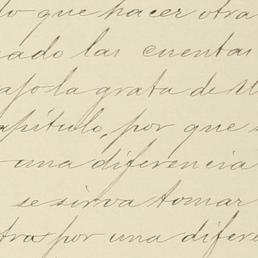 lo que hacer otra
ado las cuentas
ajo la grata de
apitulo, por que
una diferencia
se sirva tomar
tras por una difere